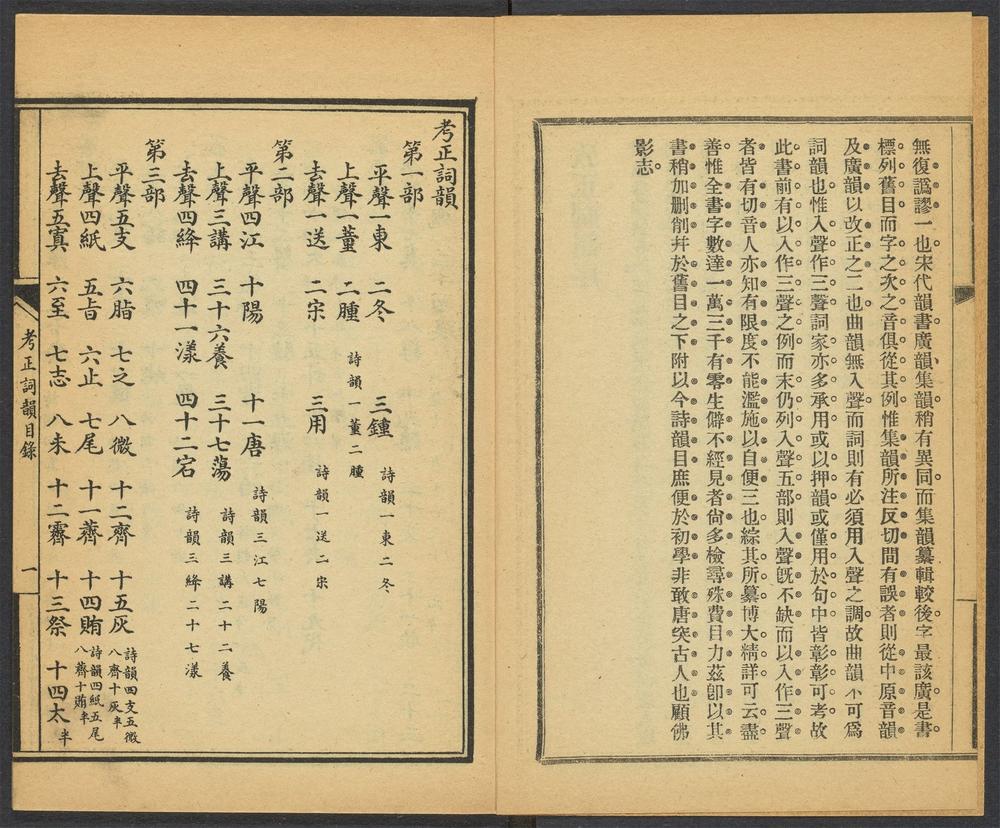 無復譌謬一也宋代韻書廣韻集韻稍有異同而集韻纂輯較後字最該廣是書
標列舊目而字之次之音俱從其例惟集韻所注反切間有誤者則從中原音韻
及廣韻以改正之二也曲韻無入聲而詞則有必須用入聲之調故曲韻不可爲
詞韻也惟入聲作三聲詞家亦多承用或以押韻或僅用於句中皆彰彰可考故
此書前有以入作三聲之例而末仍列入聲五部則入聲旣不缺而以入作三聲
者皆有切音人亦知有限度不能濫施以自便三也綜其所纂博大精詳可云盡
善惟全書字數達一萬三千有零生僻不經見者尙多檢尋殊費目力茲卽以其
書稍加刪削幷於舊目之下附以今詩韻目庶便於初學非敢唐突古人也顧佛
影志
考正詞韻
第一部
平聲一東 二冬 三鍾 詩韻一東二冬
上聲一董 二腫 詩韻一董二腫
去聲一送 二宋 三用 詩韻一送二宋
第二部
平聲四江 十陽 十一唐 詩韻三江七陽
上聲三講 三十六養 三十七蕩 詩韻三講二十二養
去聲四絳 四十一漾 四十二宕 詩韻三絳二十七漾
第三部
平聲五支 六脂 七之 八微 十二齊 十五灰 詩韻四支五微八齊十灰半
上聲四紙 五旨 六止 七尾 十一薺 十四賄 詩韻四紙五尾八薺十賄半
去聲五寘 六至 七志 八未 十二霽 十三祭 十四太半
考正詞韻目錄
一